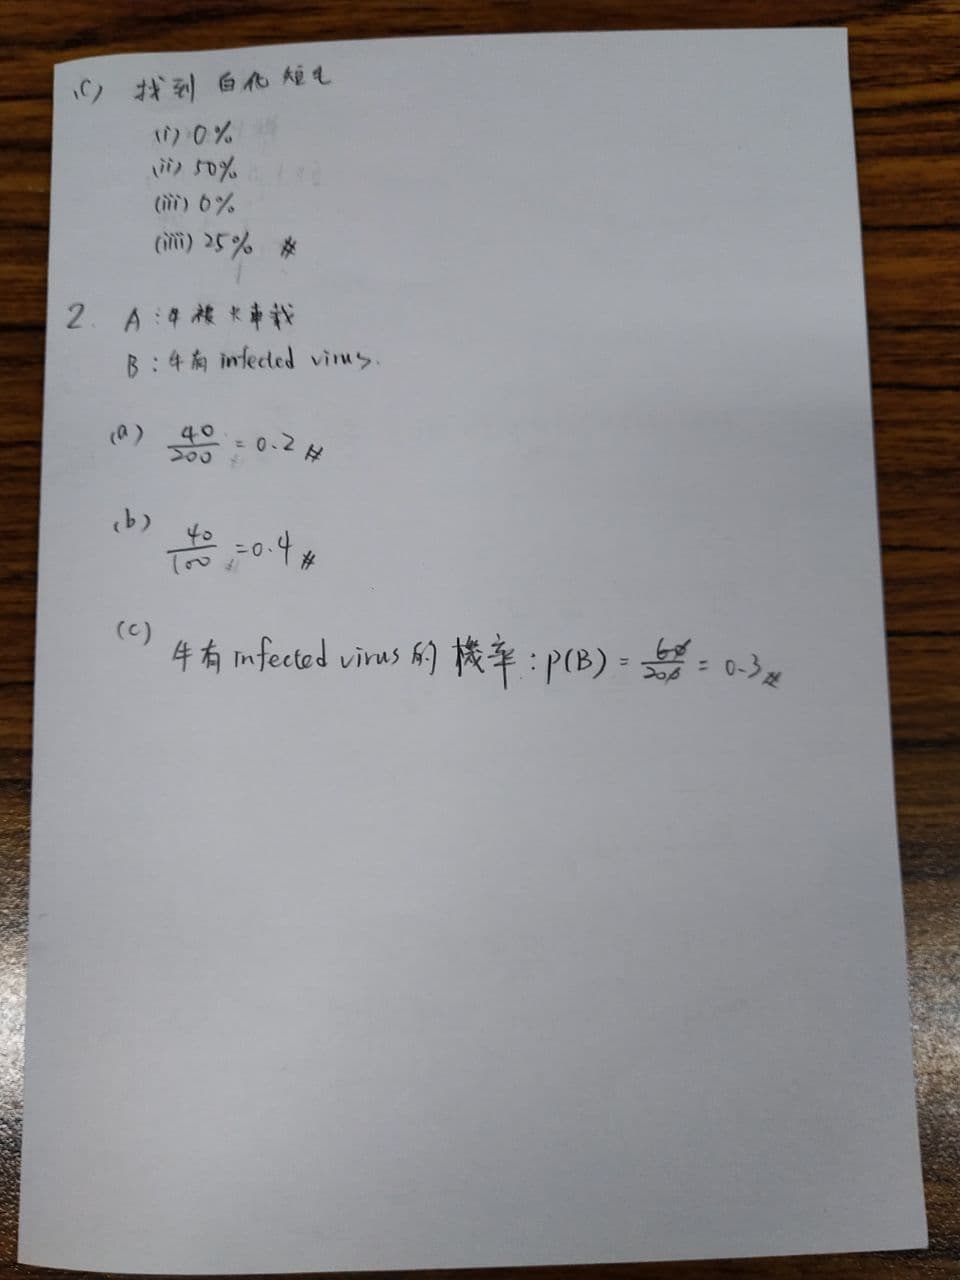 (c) 找到 白化 短毛
(i) 0%
(ii) 50%
(iii) 0%
(iiii) 25% #
2. A : 牛被卡車載
B : 牛有 infected virus.
(a) 40/200 = 0.2 #
(b) 40/100 = 0.4 #
(c) 牛有 infected virus 的 機率 : P(B) = 60/200 = 0.3 #